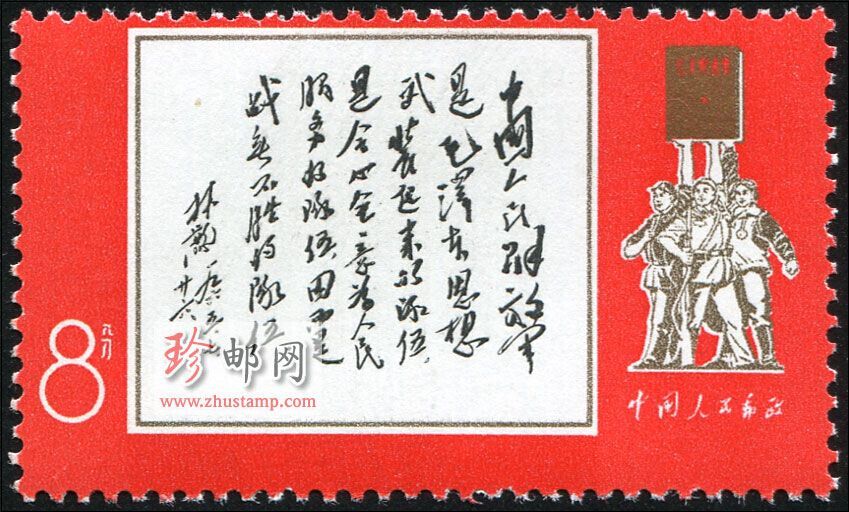 中国人民解放军
是毛泽东思想
武装起来的队伍,
是全心全意为人民
服务的队伍,因而是
战无不胜的队伍
林彪 一九六五、七
、廿六、
8分
中国人民邮政
珍邮网
www.zhustamp.com